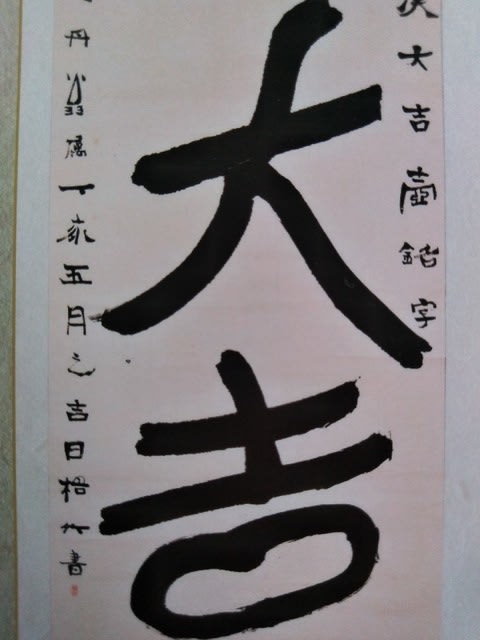 大吉壺銘字
大吉
丹翁属丁亥五月之吉日梧竹書